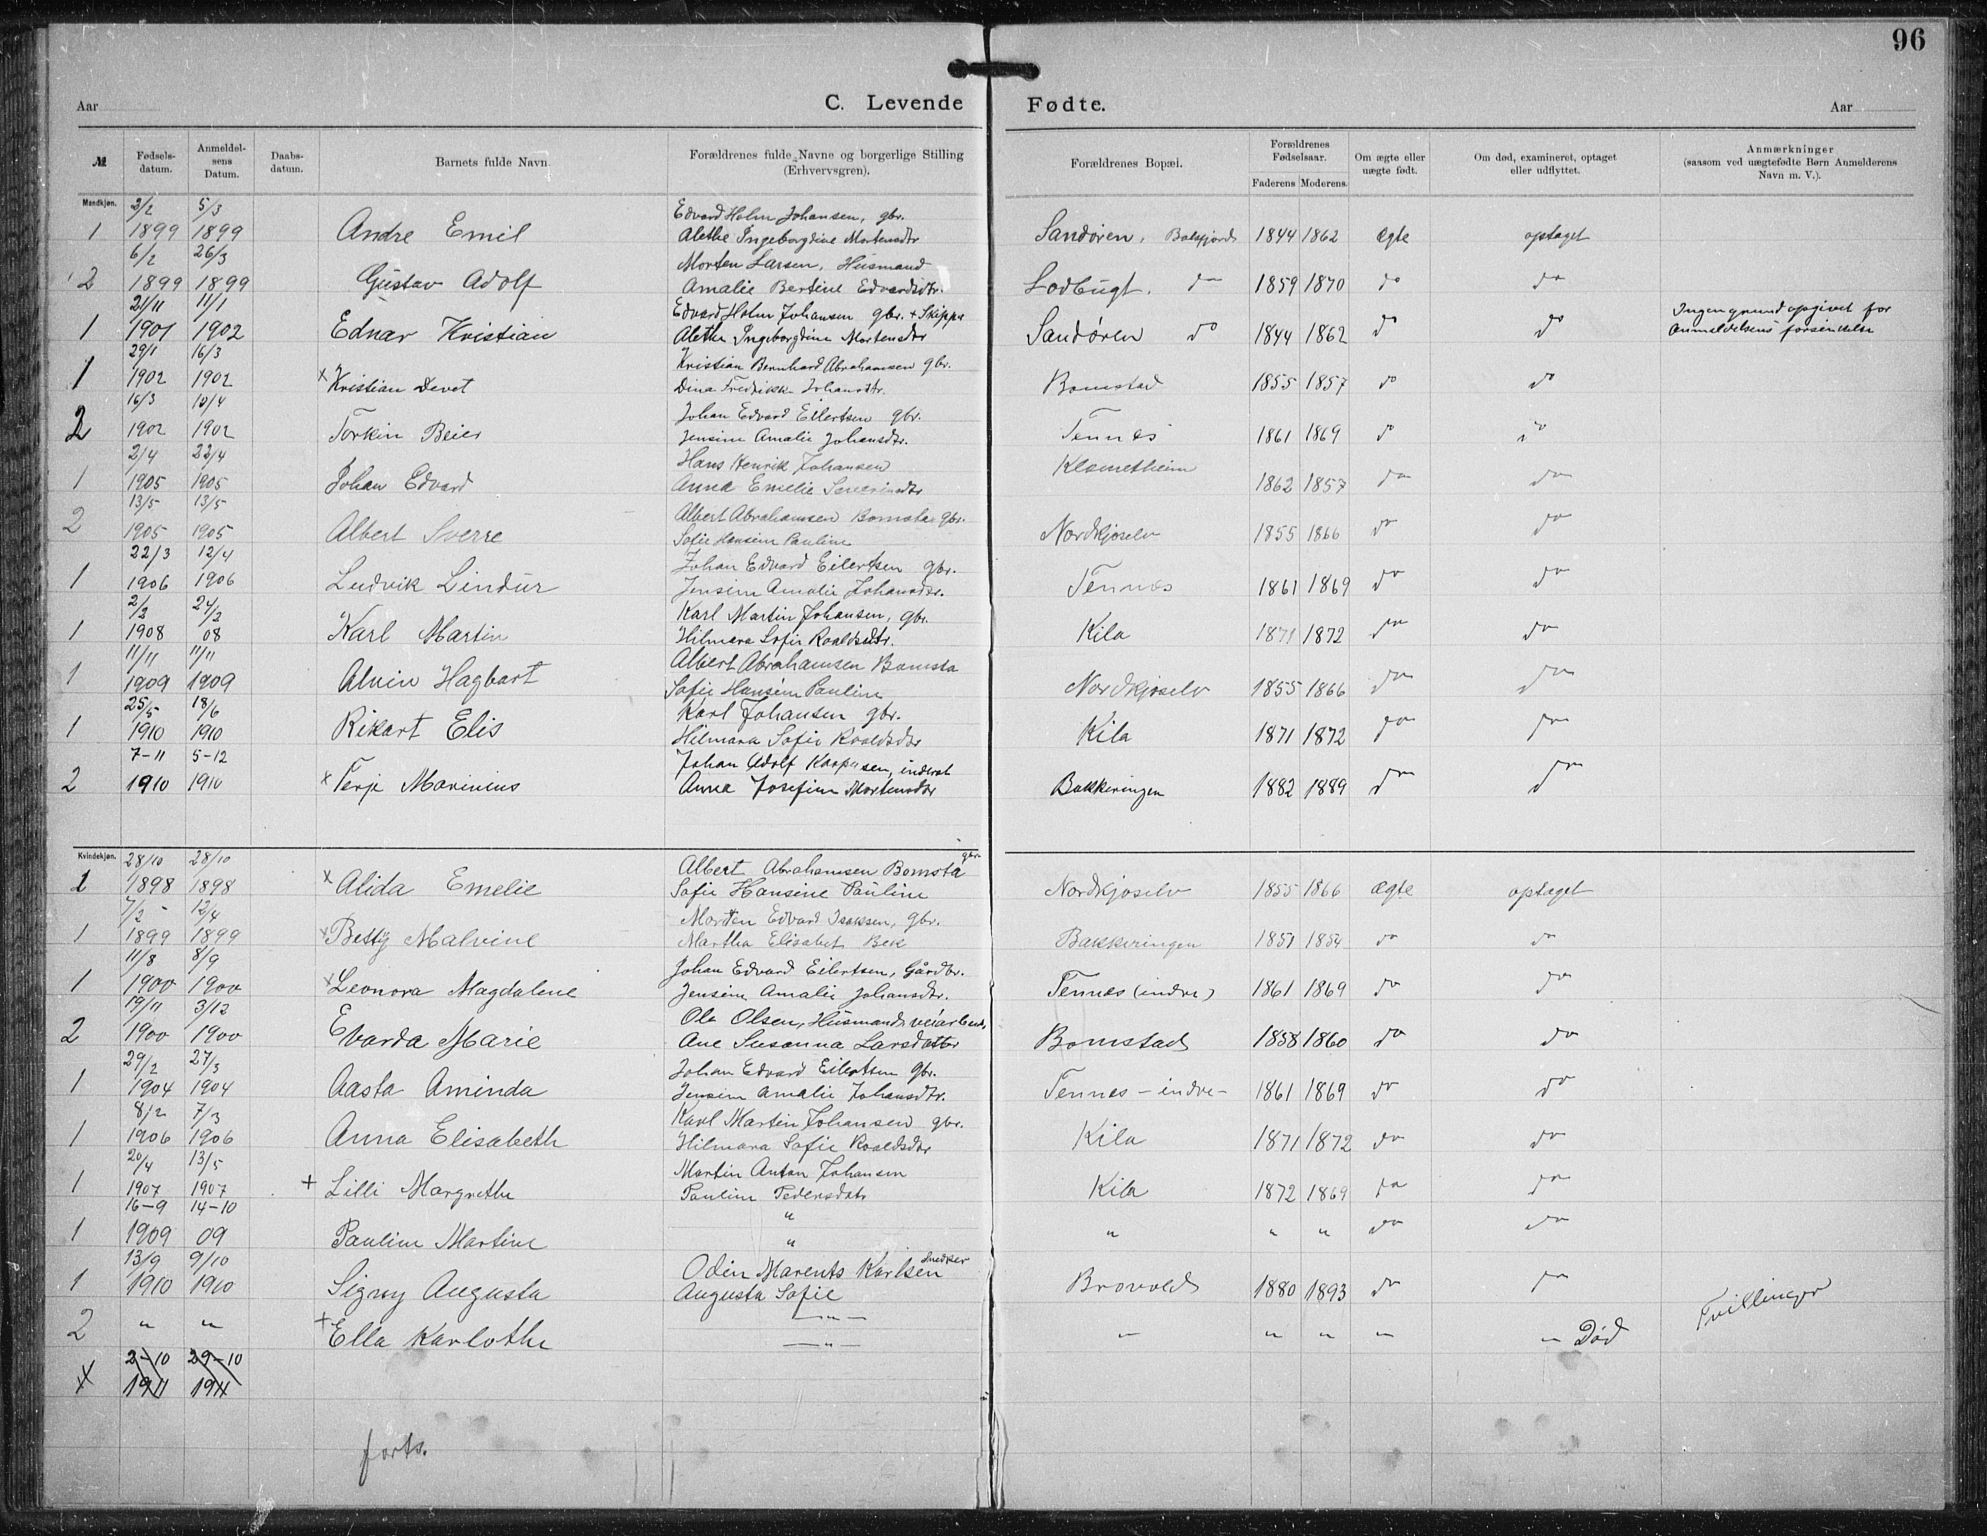 96
Aar C. Levende Fødte. Aar
№ Fødselsdatum. Anmeldelsens Datum. Daabsdatum. Barnets fulde Navn. Forældrenes fulde Navne og borgerlige Stilling (Erhvervsgren). Forældrenes Bopæl. Forældrenes Fødselsaar. Faderens Moderens. Om ægte eller uægte født. Om død, examineret, optaget eller udflyttet. Anmærkninger (saasom ved uægtefødte Børn Anmelderens Navn m. V.).
Mandkjøn. 2/2 5/3 Edvard Holm Johansen, gbr.
1 1899 1899 Andre Emil Alethe Ingeborgdine Mortensdtr Sandøren, Balsfjord 1844 1862 Ægte optaget
6/2 26/3 Morten Larsen, Husmand
2 1899 1899 Gustav Adolf Amalie Bertine Edvardsdtr. Lodbugt. do 1859 1870 do do
21/11 11/1 Edvard Holm Johansen gbr. + Skipper Ingen grund opgivet for
1 1901 1902 Ednar Kristian Alethe Ingeborgdine Mortensdtr Sandøren do 1844 1862 do do Anmeldelsens forsinkelse
29/1 16/3 Kristian Bernhard Abrahamsen gbr.
1 1902 1902 x Kristian Devet Dina Fredrikke Johansdtr. Bomstad 1855 1857 do do
16/3 10/4 Johan Edvard Eilertsen gbr.
2 1902 1902 Torkin Beier Jensine Amalie Johansdtr. Tennes 1861 1869 do do
2/4 22/4 Hans Henrik Johansen Klemetheim
1 1905 1905 Johan Edvard Anna Emelie Severinsdtr 1862 1857 do do
13/5 13/5 Albert Abrahamsen Bomsta gbr.
2 1905 1905 Albert Sverre Sofie Hansine Pauline Nordkjoselv 1855 1866 do do
22/3 12/4 Johan Edvard Eilertsen gbr.
1 1906 1906 Ludvik Lindur Jensine Amalie Johansdtr. Tennes 1861 1869 do do
2/2 24/2 Karl Martin Johansen, gbr.
1 1908 08 Karl Martin Hilmara Sofie Roaldsdtr. Kila 1871 1872 do do
11/11 11/11 Albert Abrahamsen Bomsta
1 1909 1909 Alvin Hagbart Sofie Hansine Pauline Nordkjoselv 1855 1866 do do
25/5 18/6 Karl Johansen gbr.
1 1910 1910 Rikart Elis Hilmara Sofie Roaldsdtr Kila 1871 1872 do do
7-11 5-12 Johan Adolf inderst
2 1910 1910 x Terje Marinius Anna Josefine Mortensdtr Bakkeringen 1882 1889 do do
Kvindekjøn. 28/10 28/10 Albert Abrahamsen Bomsta gbr.
1 1898 1898 x Alida Emelie Sofie Hansine Pauline Nordkjoselv 1855 1866 Ægte optaget
7/2 12/4 Morten Edvard Isaksen, gbr.
1 1899 1899 x Betty Malvine Martha Elisabet Bek Bakkeringen 1851 1854 do do
11/8 8/9 Johan Edvard Eilertsen, Gårdbr.
1 1900 1900 x Leonora Magdalene Jensine Amalie Johansdtr. Tennes (indre) 1861 1869 do do
19/11 3/12 Ole Olsen, Husmand
2 1900 1900 Evarda Marie Ane Susanna Larsdatter Bomstad 1858 1860 do do
29/2 27/3 Johan Edvard Eilertsen gbr.
1 1904 1904 Aasta Aminda Jensine Amalie Johansdtr. Tennes - indre - 1861 1869 do do
8/2 7/3 Karl Martin Johansen gbr.
1 1906 1906 Anna Elisabeth Hilmara Sofie Roaldsdtr Kila 1871 1872 do do
20/4 13/5 Martin Anton Johansen
1 1907 1907 + Lilli Margrethe Pauline Pedersdatr Kila 1872 1869 do do
16-9 14-10 "
1 1909 09 Pauline Martine " " " " do do
13/9 9/10 Odin Marents Karlsen Snedker
1 1910 1910 Signy Augusta Augusta Sofie Brovold 1880 1893 do do Tvillinger
2 " " + Ella Karlothe — " — — " — " " " " " Død
2-10 29-10
x 1911 1911
forts.